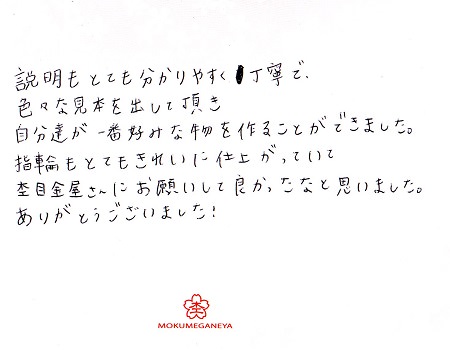 説明もとても分かりやすく丁寧で、
色々な見本を出して頂き
自分達が一番好みな物を作ることができました。
指輪もとてもきれいに仕上がっていて
杢目金屋さんにお願いして良かったなと思いました。
ありがとうございました!
杢
MOKUMEGANEYA